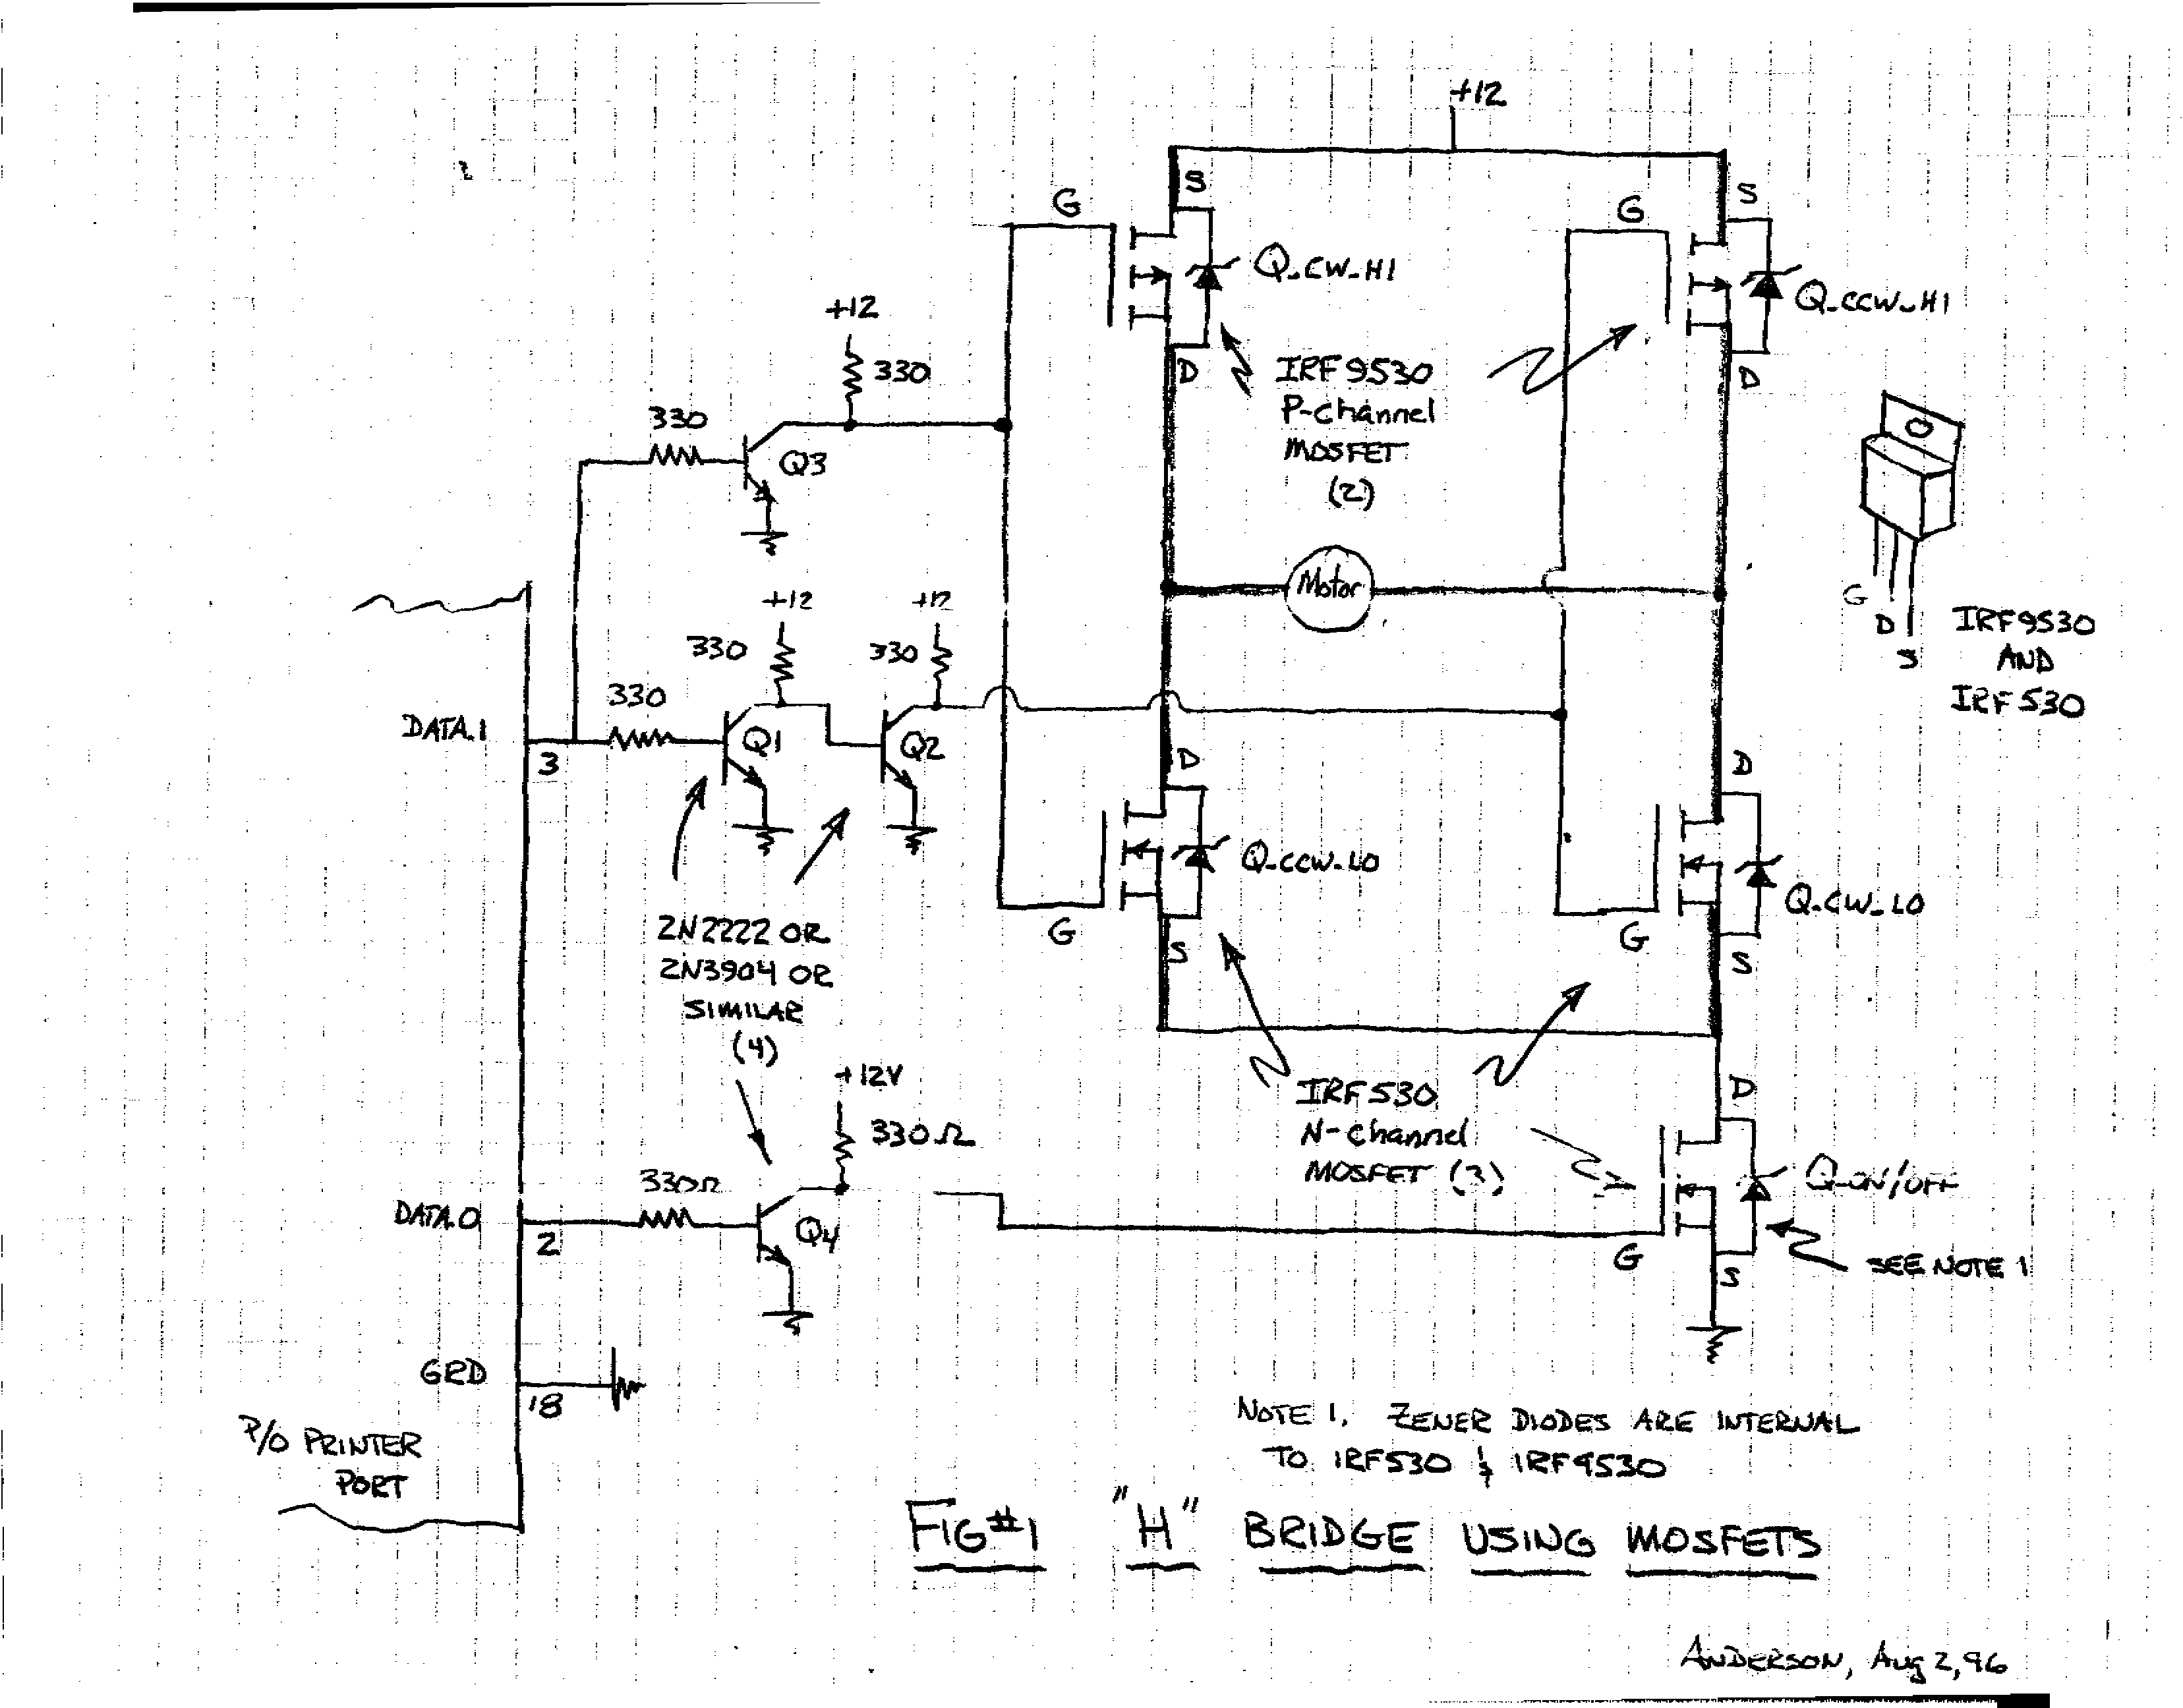 +12
S
G
Q-CW-HI
D
S
G
Q-CCW-HI
D
IRF9530
P-Channel
MOSFET
(2)
+12
330
330
Q3
Motor
G
D
S
IRF9530
AND
IRF530
+12
330
+12
330
330
DATA.1
3
Q1
Q2
2N2222 OR
2N3904 OR
SIMILAR
(4)
D
Q-CCW-LO
G
S
D
Q-CW-LO
G
S
IRF530
N-Channel
MOSFET (3)
+12V
330Ω
330Ω
DATA.0
2
Q4
D
Q-ON/OFF
G
S
SEE NOTE 1
GRD
18
P/O PRINTER
PORT
NOTE 1. ZENER DIODES ARE INTERNAL
TO IRF530 & IRF9530
FIG#1 "H" BRIDGE USING MOSFETS
ANDERSON, Aug 2, 96